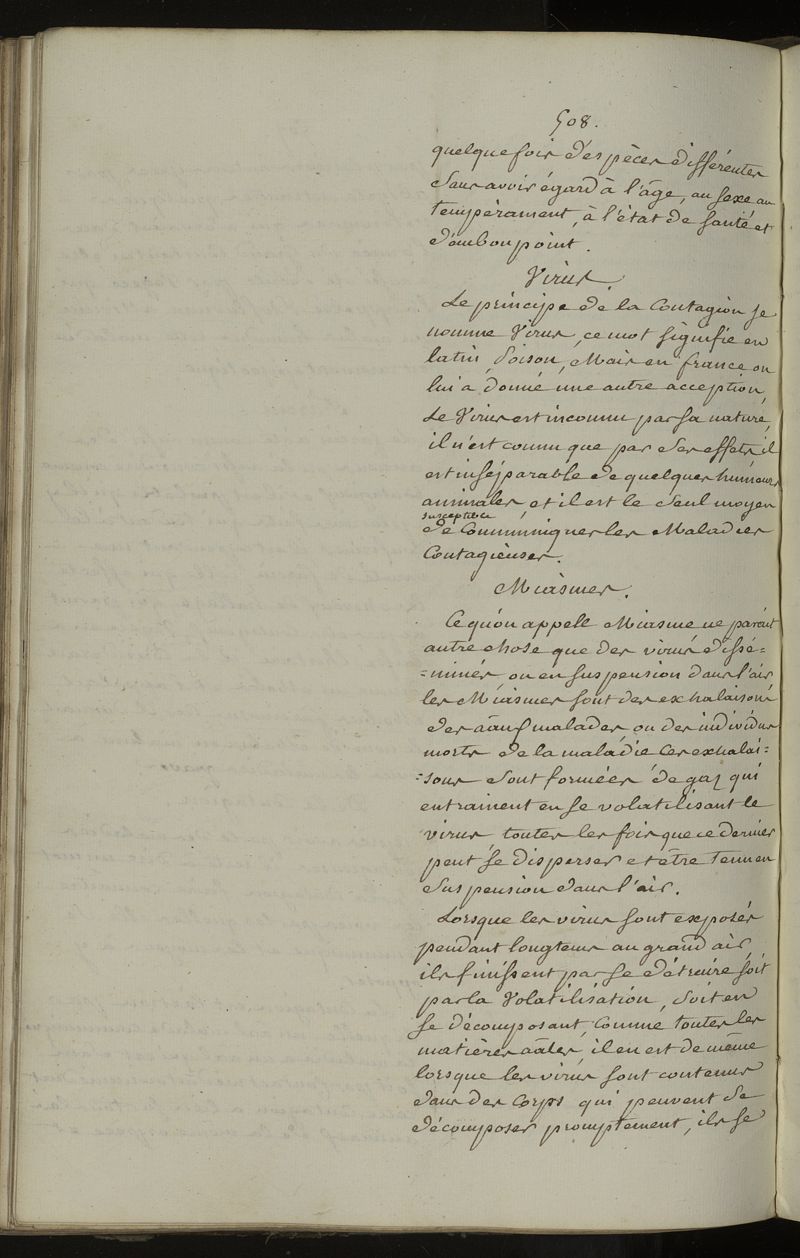 508.
quelquefois d'espèces différentes
sans avoir égard à l'âge, au sexe au
tempérament, à l'état de santé et
d'embonpoint.
Virus.
Le principe de la Contagion se
nomme Virus, ce mot signifie en
latin, Poison, Mais en france on
lui a donné une autre acception,
Le Virus est inconnu par sa nature,
il n'est connu que par ses effets il
est inséparable de quelques humeurs
animales et il est le seul moyen
susceptible
de Communiquer les Maladies
Contagieuses.
Miasmes.
Ce qu'on appell Miasme ne parait
autre chose que des virus dissé=
=minés, ou en suspension dans l'air
les Miasmes sont des exhalaisons
des aãux malades ou des individus
morts de la maladie Ces exhalai=
=sons sont formées de gaz qui
entrainent en se volatilisant le
virus toutes les fois que ce dernier
peut se disperser et être tenu en
suspension dans l'air.
Lorsque les virus sont exposés
pendant longtems au grand air,
ils finissent par se détruire soit
par la Volatilisation, soit en
se décomposant Comme toutes les
matières aãles, il en est de même
lorsque les virus sont contenus
dans des Corps qui peuvent se
décomposer promptement, ils se